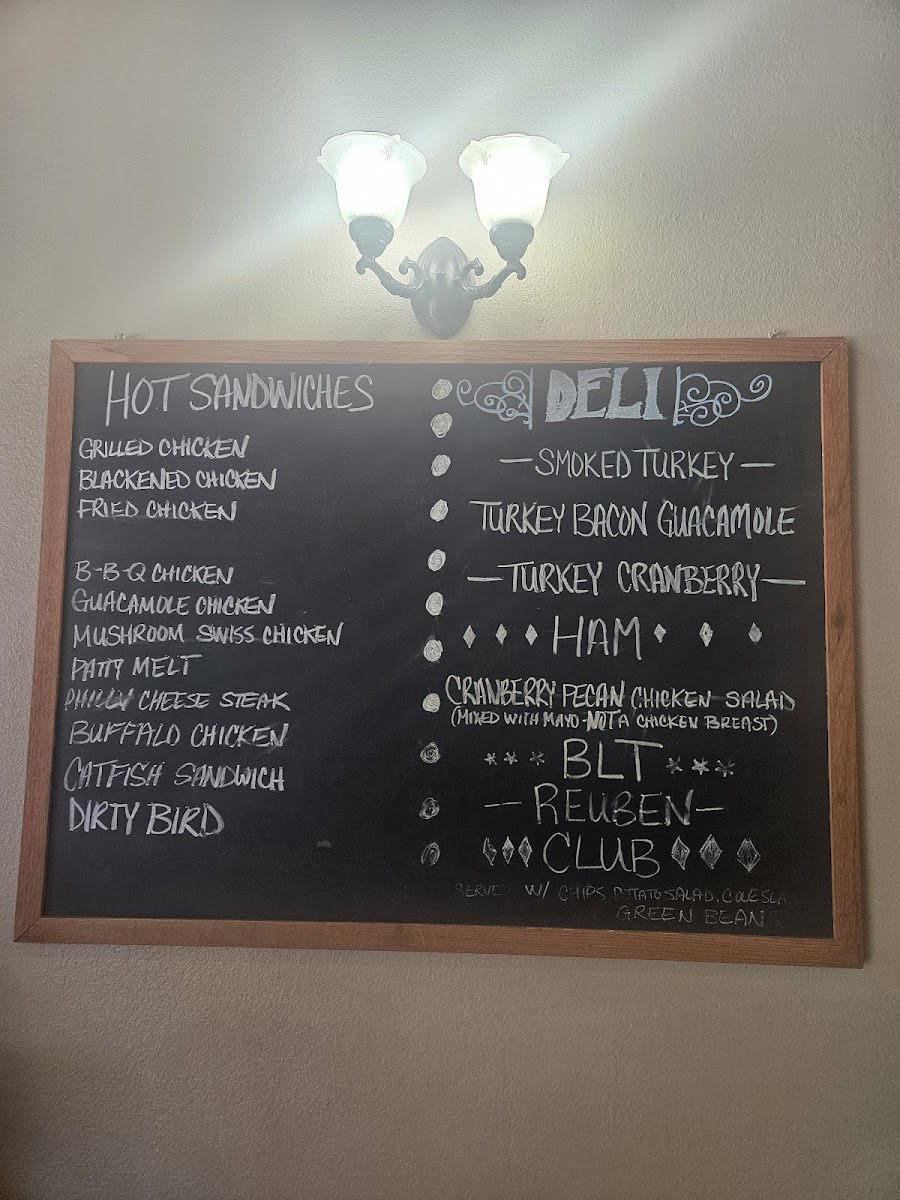 HOT SANDWICHES
GRILLED CHICKEN
BLACKENED CHICKEN
FRIED CHICKEN
B-B-Q CHICKEN
GUACAMOLE CHICKEN
MUSHROOM SWISS CHICKEN
PATTY MELT
PHILLY CHEESE STEAK
BUFFALO CHICKEN
CATFISH SANDWICH
DIRTY BIRD
DELI
—SMOKED TURKEY—
TURKEY BACON GUACAMOLE
—TURKEY CRANBERRY—
HAM
CRANBERRY PECAN CHICKEN SALAD
(MIXED WITH MAYO-NOT A CHICKEN BREAST)
*** BLT ***
-- REUBEN-
CLUB
SERVE W/ CHIPS POTATO SALAD, COLESLA
GREEN BEAN